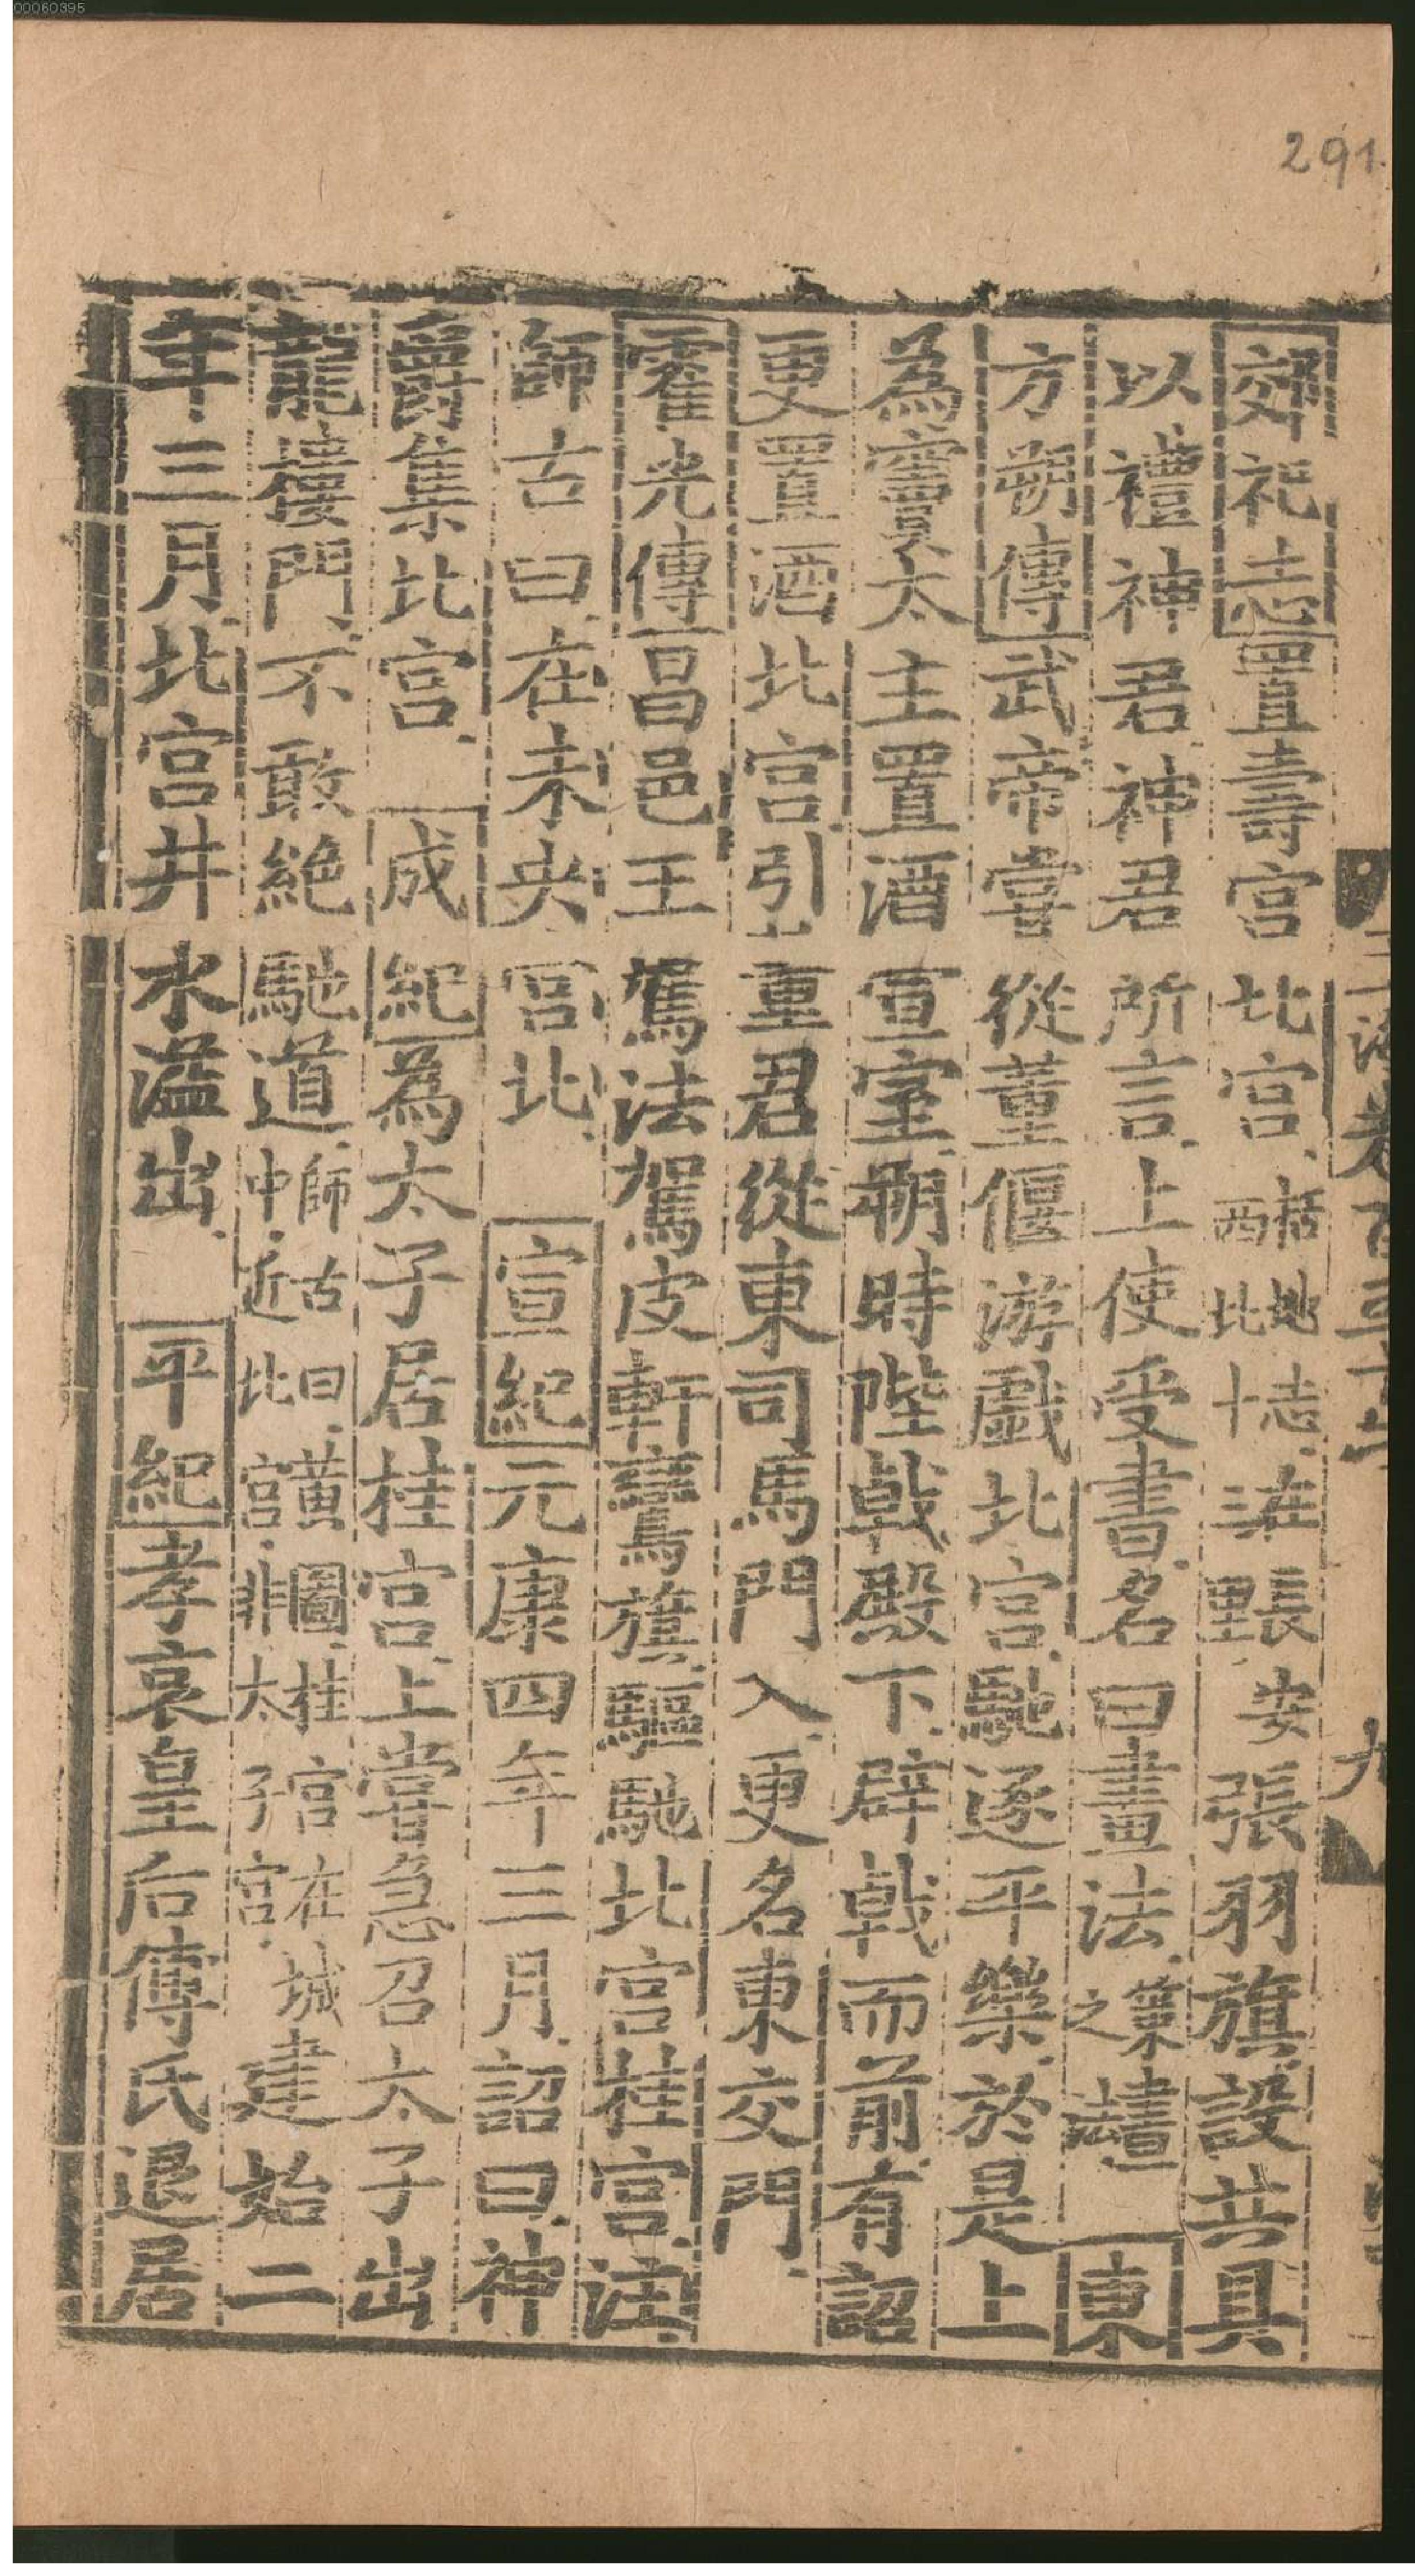 00060395
291
郊祀志置壽宮北宮括地志在長安西北十三里張羽旗設共具
以禮神君神君所言上使受書名曰畫法策畫之法東
方朔傳武帝嘗從董偃游戲北宮馳逐平樂於是上
為竇太主置酒宣室朔時陛戟殿下辟戟而前有詔
更置酒北宮引董君從東司馬門入更名東交門
霍光傳昌邑王駕法駕皮軒鸞旗驅馳北宮桂宮注
師古曰在未央宮北宣紀元康四年三月詔曰神
爵集北宮成紀為太子居桂宮上嘗急召太子出
龍樓門不敢絕馳道師古曰黃圖桂宮在城中近北宮非太子宮建始二
年三月北宮井水溢出平紀孝哀皇后傅氏退居
九